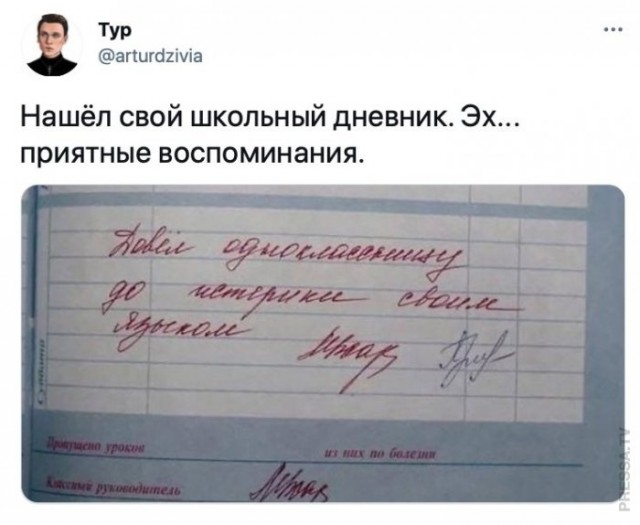 Тур
@arturdzivia
Нашёл свой школьный дневник. Эх...
приятные воспоминания.
Довёл одноклассницу
до истерики своим
языком
Суббота
Пропущено уроков
из них по болезни
Классный руководитель
PRESSA.TV